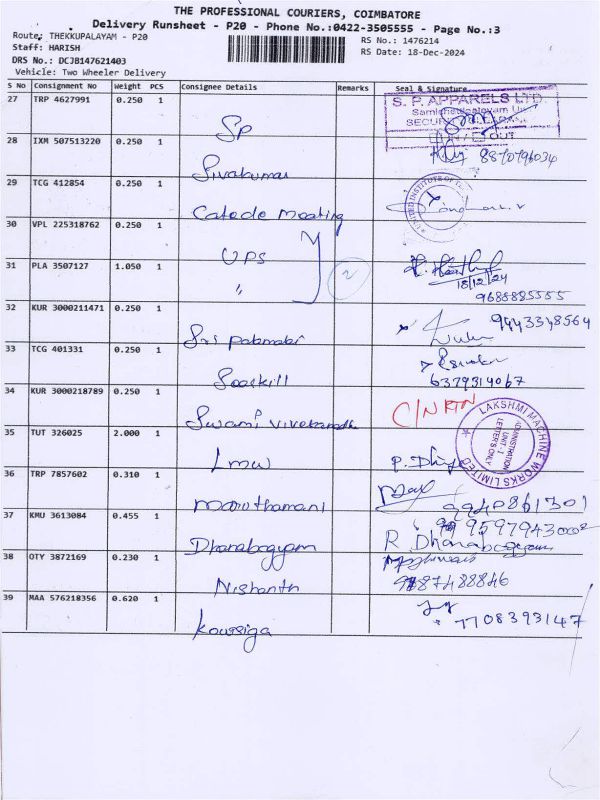 THE PROFESSIONAL COURIERS, COIMBATORE
Delivery Runsheet - P20 - Phone No.:0422-3505555 - Page No.:3
Route: THEKKUPALAYAM - P20
RS No.: 1476214
Staff: HARISH
RS Date: 18-Dec-2024
DRS No.: DCJB147621403
Vehicle: Two Wheeler Delivery
S No Consignment No Weight PCS Consignee Details Remarks Seal & Signature
27 TRP 4627991 0.250 1
Sp
S. P. APPARELS LTD.
28 IXM 507513220 0.250 1
Sivakumar
OUT
29 TCG 412854 0.250 1
30 VPL 225318762 0.250 1
UPS
31 PLA 3507127 1.050 1
"
2
18/12/24
9688885555
32 KUR 3000211471 0.250 1
9443348564
33 TCG 401331 0.250 1
6379314067
34 KUR 3000218789 0.250 1
Swami Vivekanandha
C/N RTN
35 TUT 326025 2.000 1
LMW
LAKSHMI MACHINE WORKS LIMITED
ADMINISTRATION
UNIT - I
LETTER'S ONLY
36 TRP 7857602 0.310 1
Maruthamani
37 KMU 3613084 0.455 1
Dhanabagyam
R. Dhanabagyam
38 OTY 3872169 0.230 1
Nishanth
9487488846
39 MAA 576218356 0.620 1
Kowsiga
7708393147